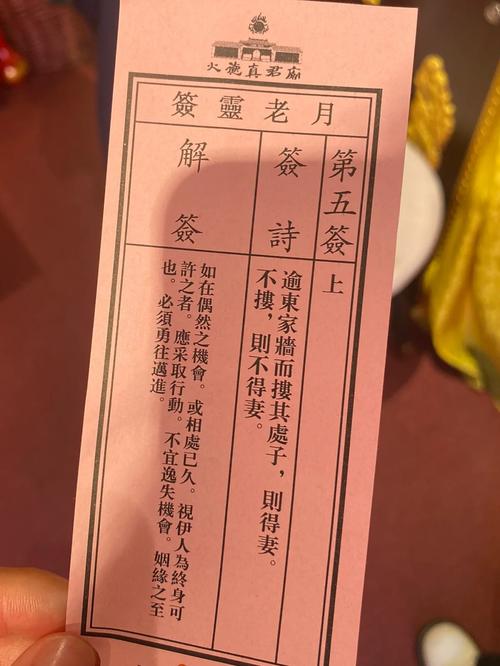 火德真君廟
月老靈簽
第五簽
上
簽詩
逾東家牆而摟其處子，則得妻。
不摟，則不得妻。
解簽
如在偶然之機會。或相處已久。視伊人為終身可
許之者。應采取行動。不宜逸失機會。姻緣之至
也。必須勇往邁進。